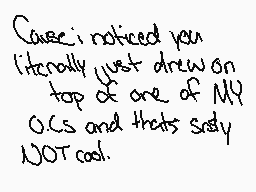 Cause i noticed you
literally just drew on
top of one of MY
O.Cs and thats srsly
NOT cool.